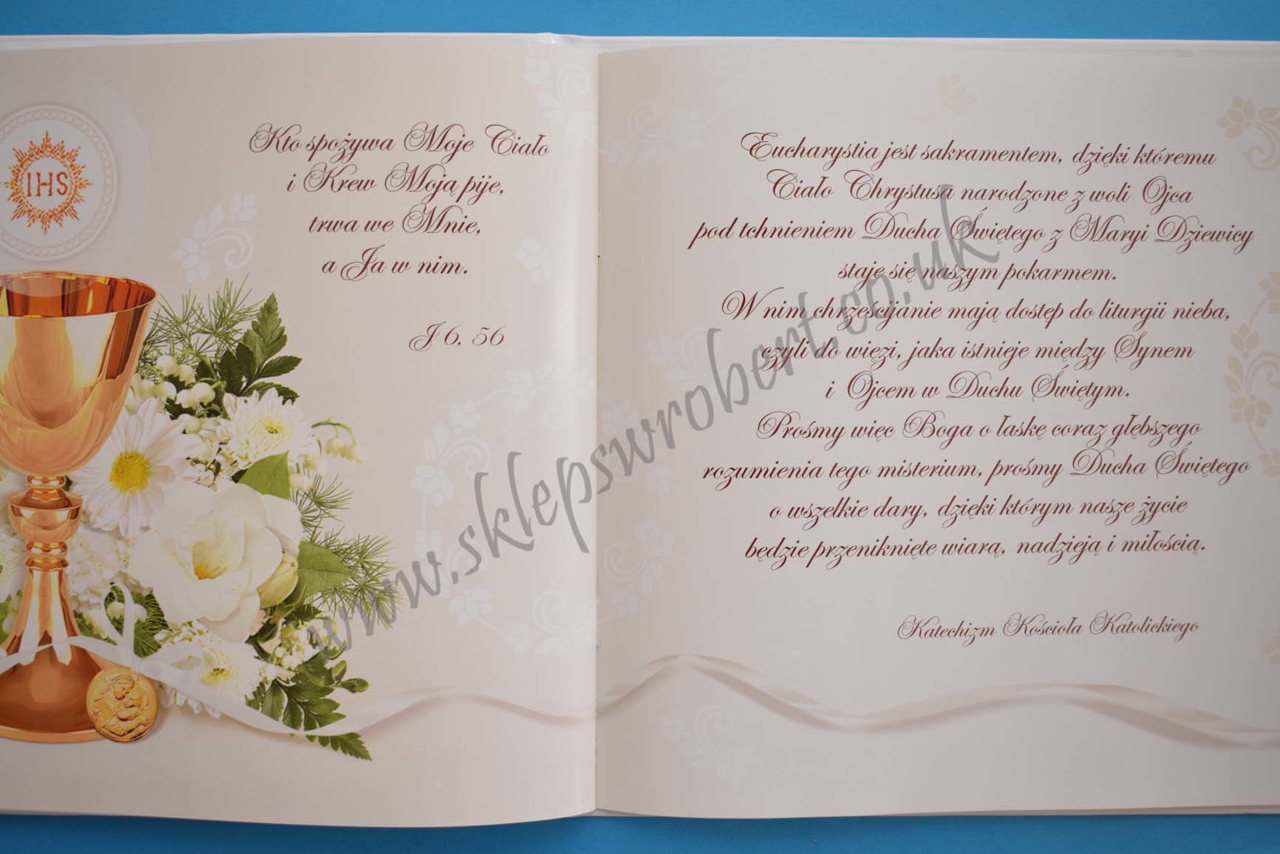 IHS
Kto spożywa Moje Ciało
i Krew Moją pije,
trwa we Mnie,
a Ja w nim.
J 6, 56
Eucharystia jest sakramentem, dzięki któremu
Ciało Chrystusa narodzone z woli Ojca
pod tchnieniem Ducha Świętego z Maryi Dziewicy
staje się naszym pokarmem.
W nim chrześcijanie mają dostęp do liturgii nieba,
czyli do więzi, jaka istnieje między Synem
i Ojcem w Duchu Świętym.
Prośmy więc Boga o łaskę coraz głębszego
rozumienia tego misterium, prośmy Ducha Świętego
o wszelkie dary, dzięki którym nasze życie
będzie przeniknięte wiarą, nadzieją i miłością.
Katechizm Kościoła Katolickiego
www.sklepswrobert.co.uk